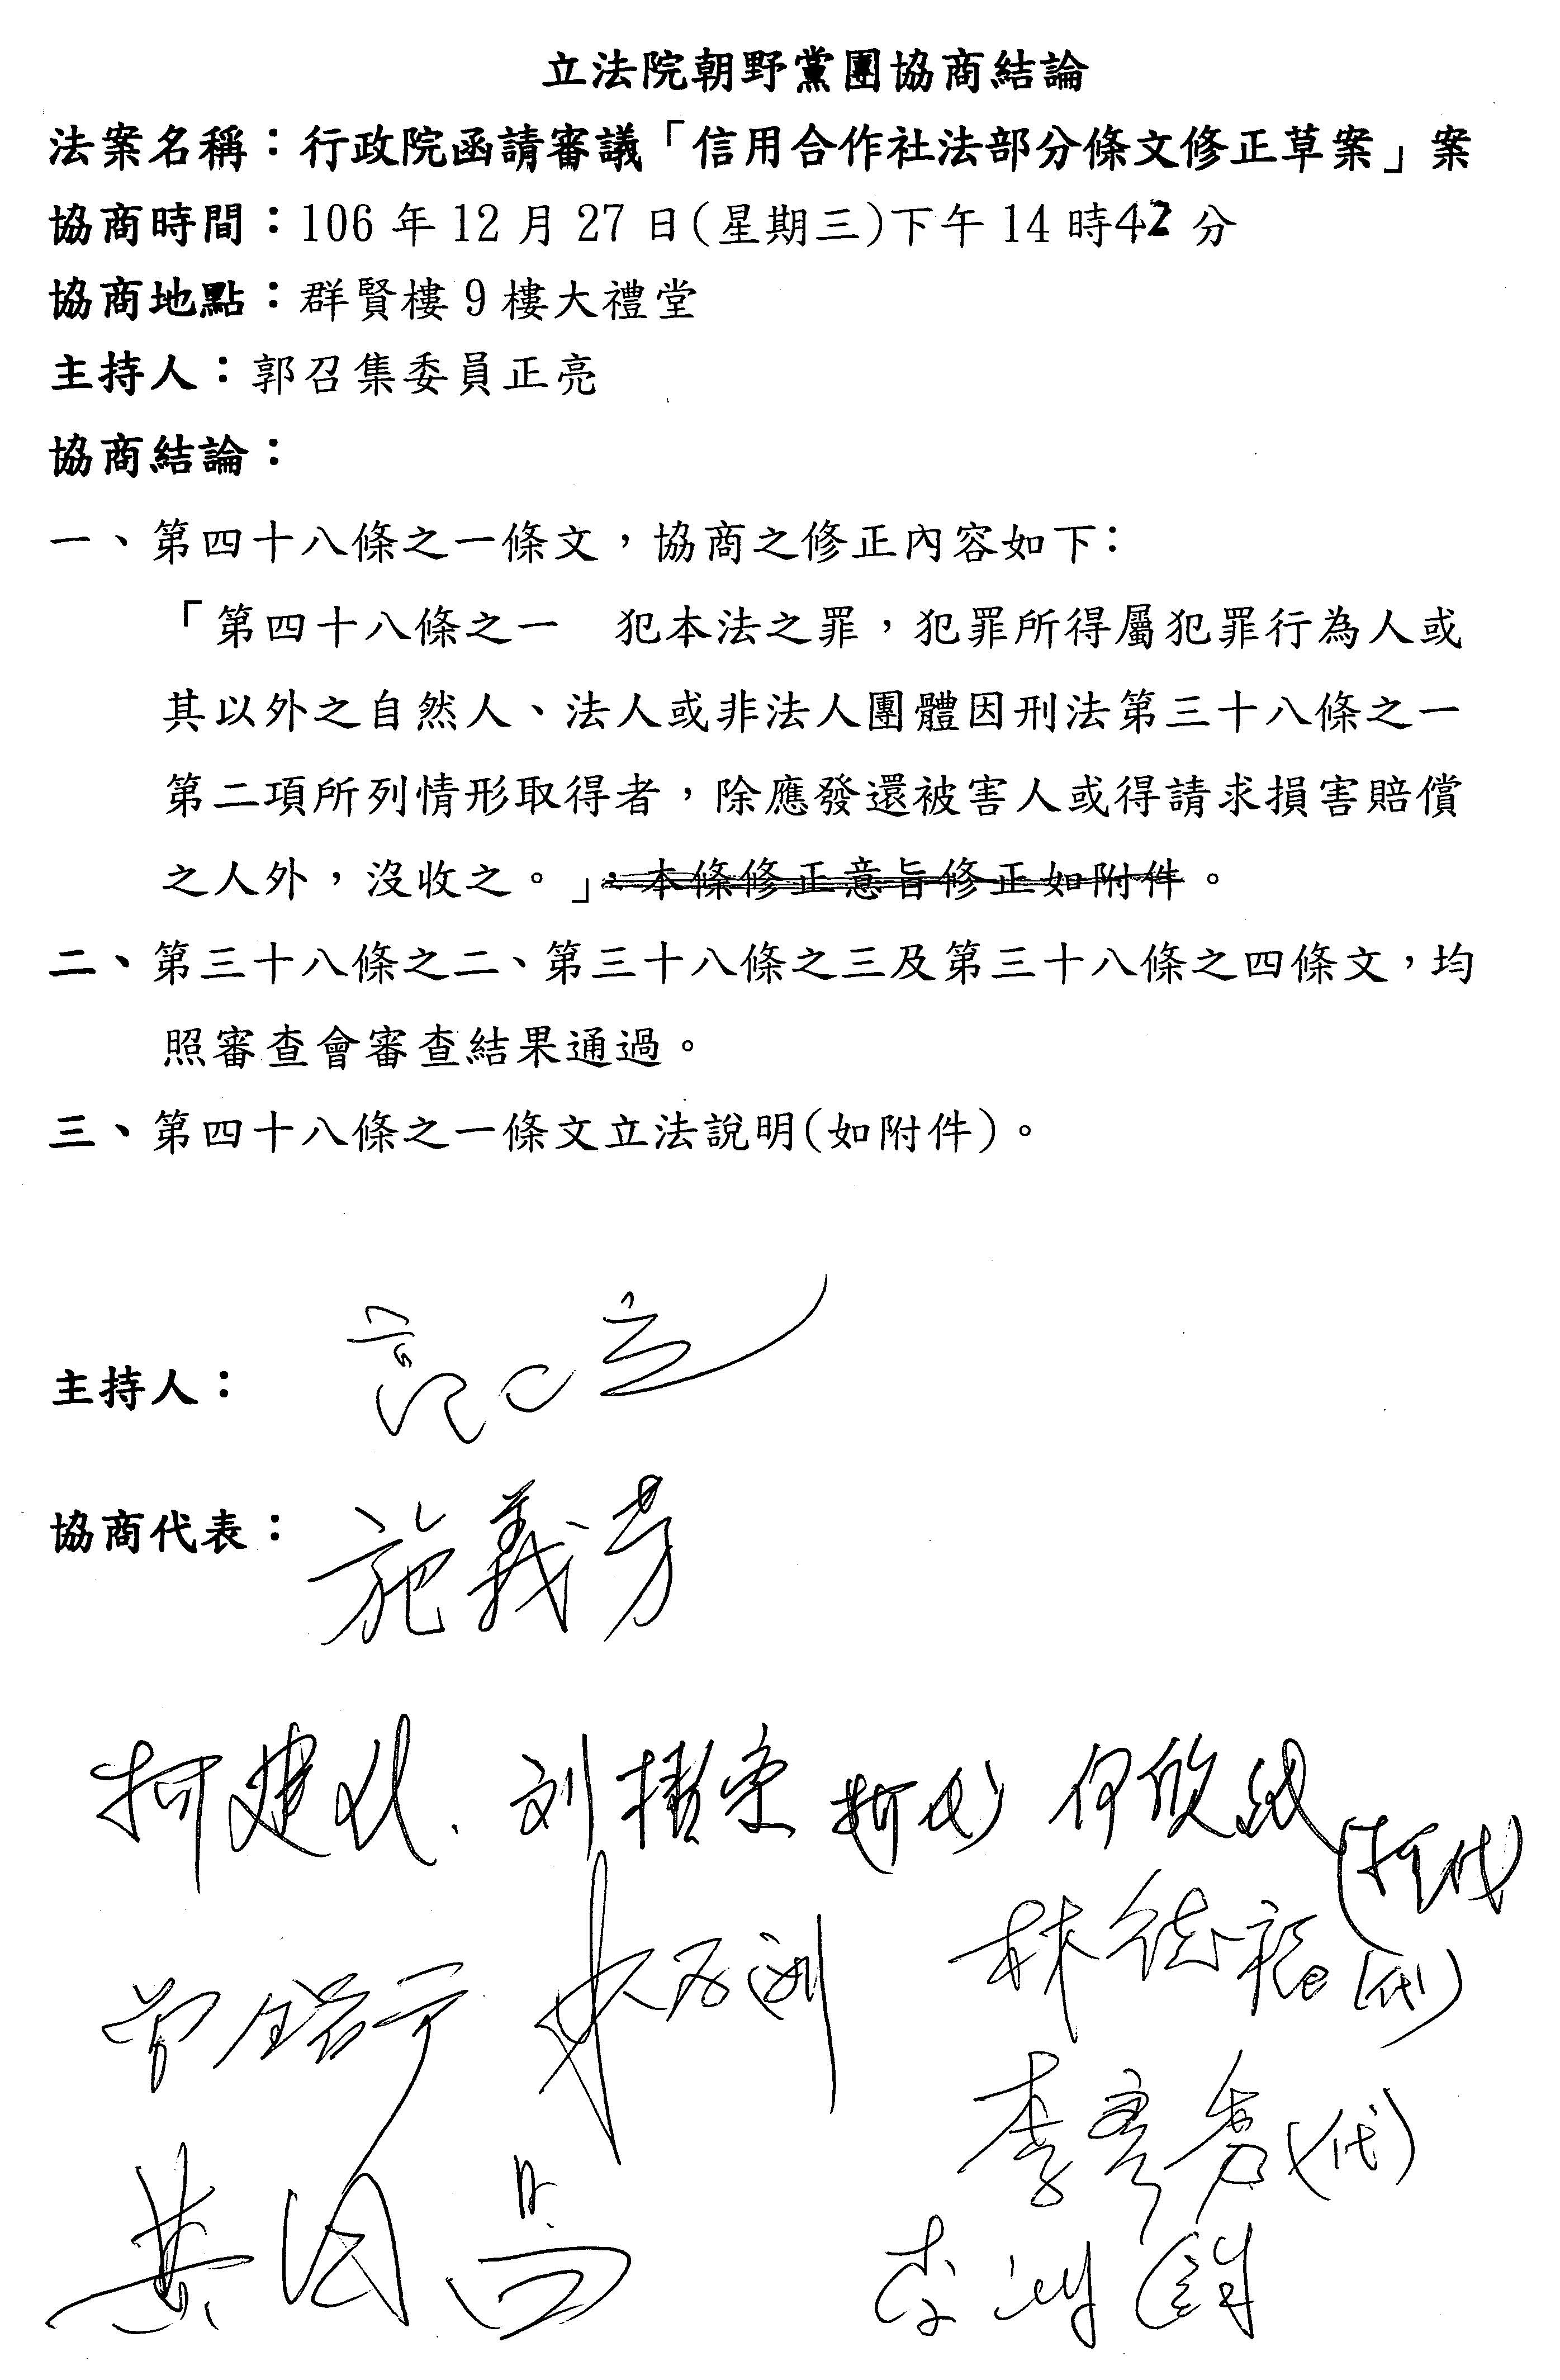 立法院朝野黨團協商結論
法案名稱：行政院函請審議「信用合作社法部分條文修正草案」案
協商時間：106年12月27日(星期三)下午14時42分
協商地點：群賢樓9樓大禮堂
主持人：郭召集委員正亮
協商結論：
一、第四十八條之一條文，協商之修正內容如下：
「第四十八條之一　犯本法之罪，犯罪所得屬犯罪行為人或
其以外之自然人、法人或非法人團體因刑法第三十八條之一
第二項所列情形取得者，除應發還被害人或得請求損害賠償
之人外，沒收之。」；本條修正意旨修正如附件。
二、第三十八條之二、第三十八條之三及第三十八條之四條文，均
照審查會審查結果通過。
三、第四十八條之一條文立法說明(如附件)。
主持人：
協商代表：施義芳
林德福(代)
李彥秀(代)
李鴻鈞